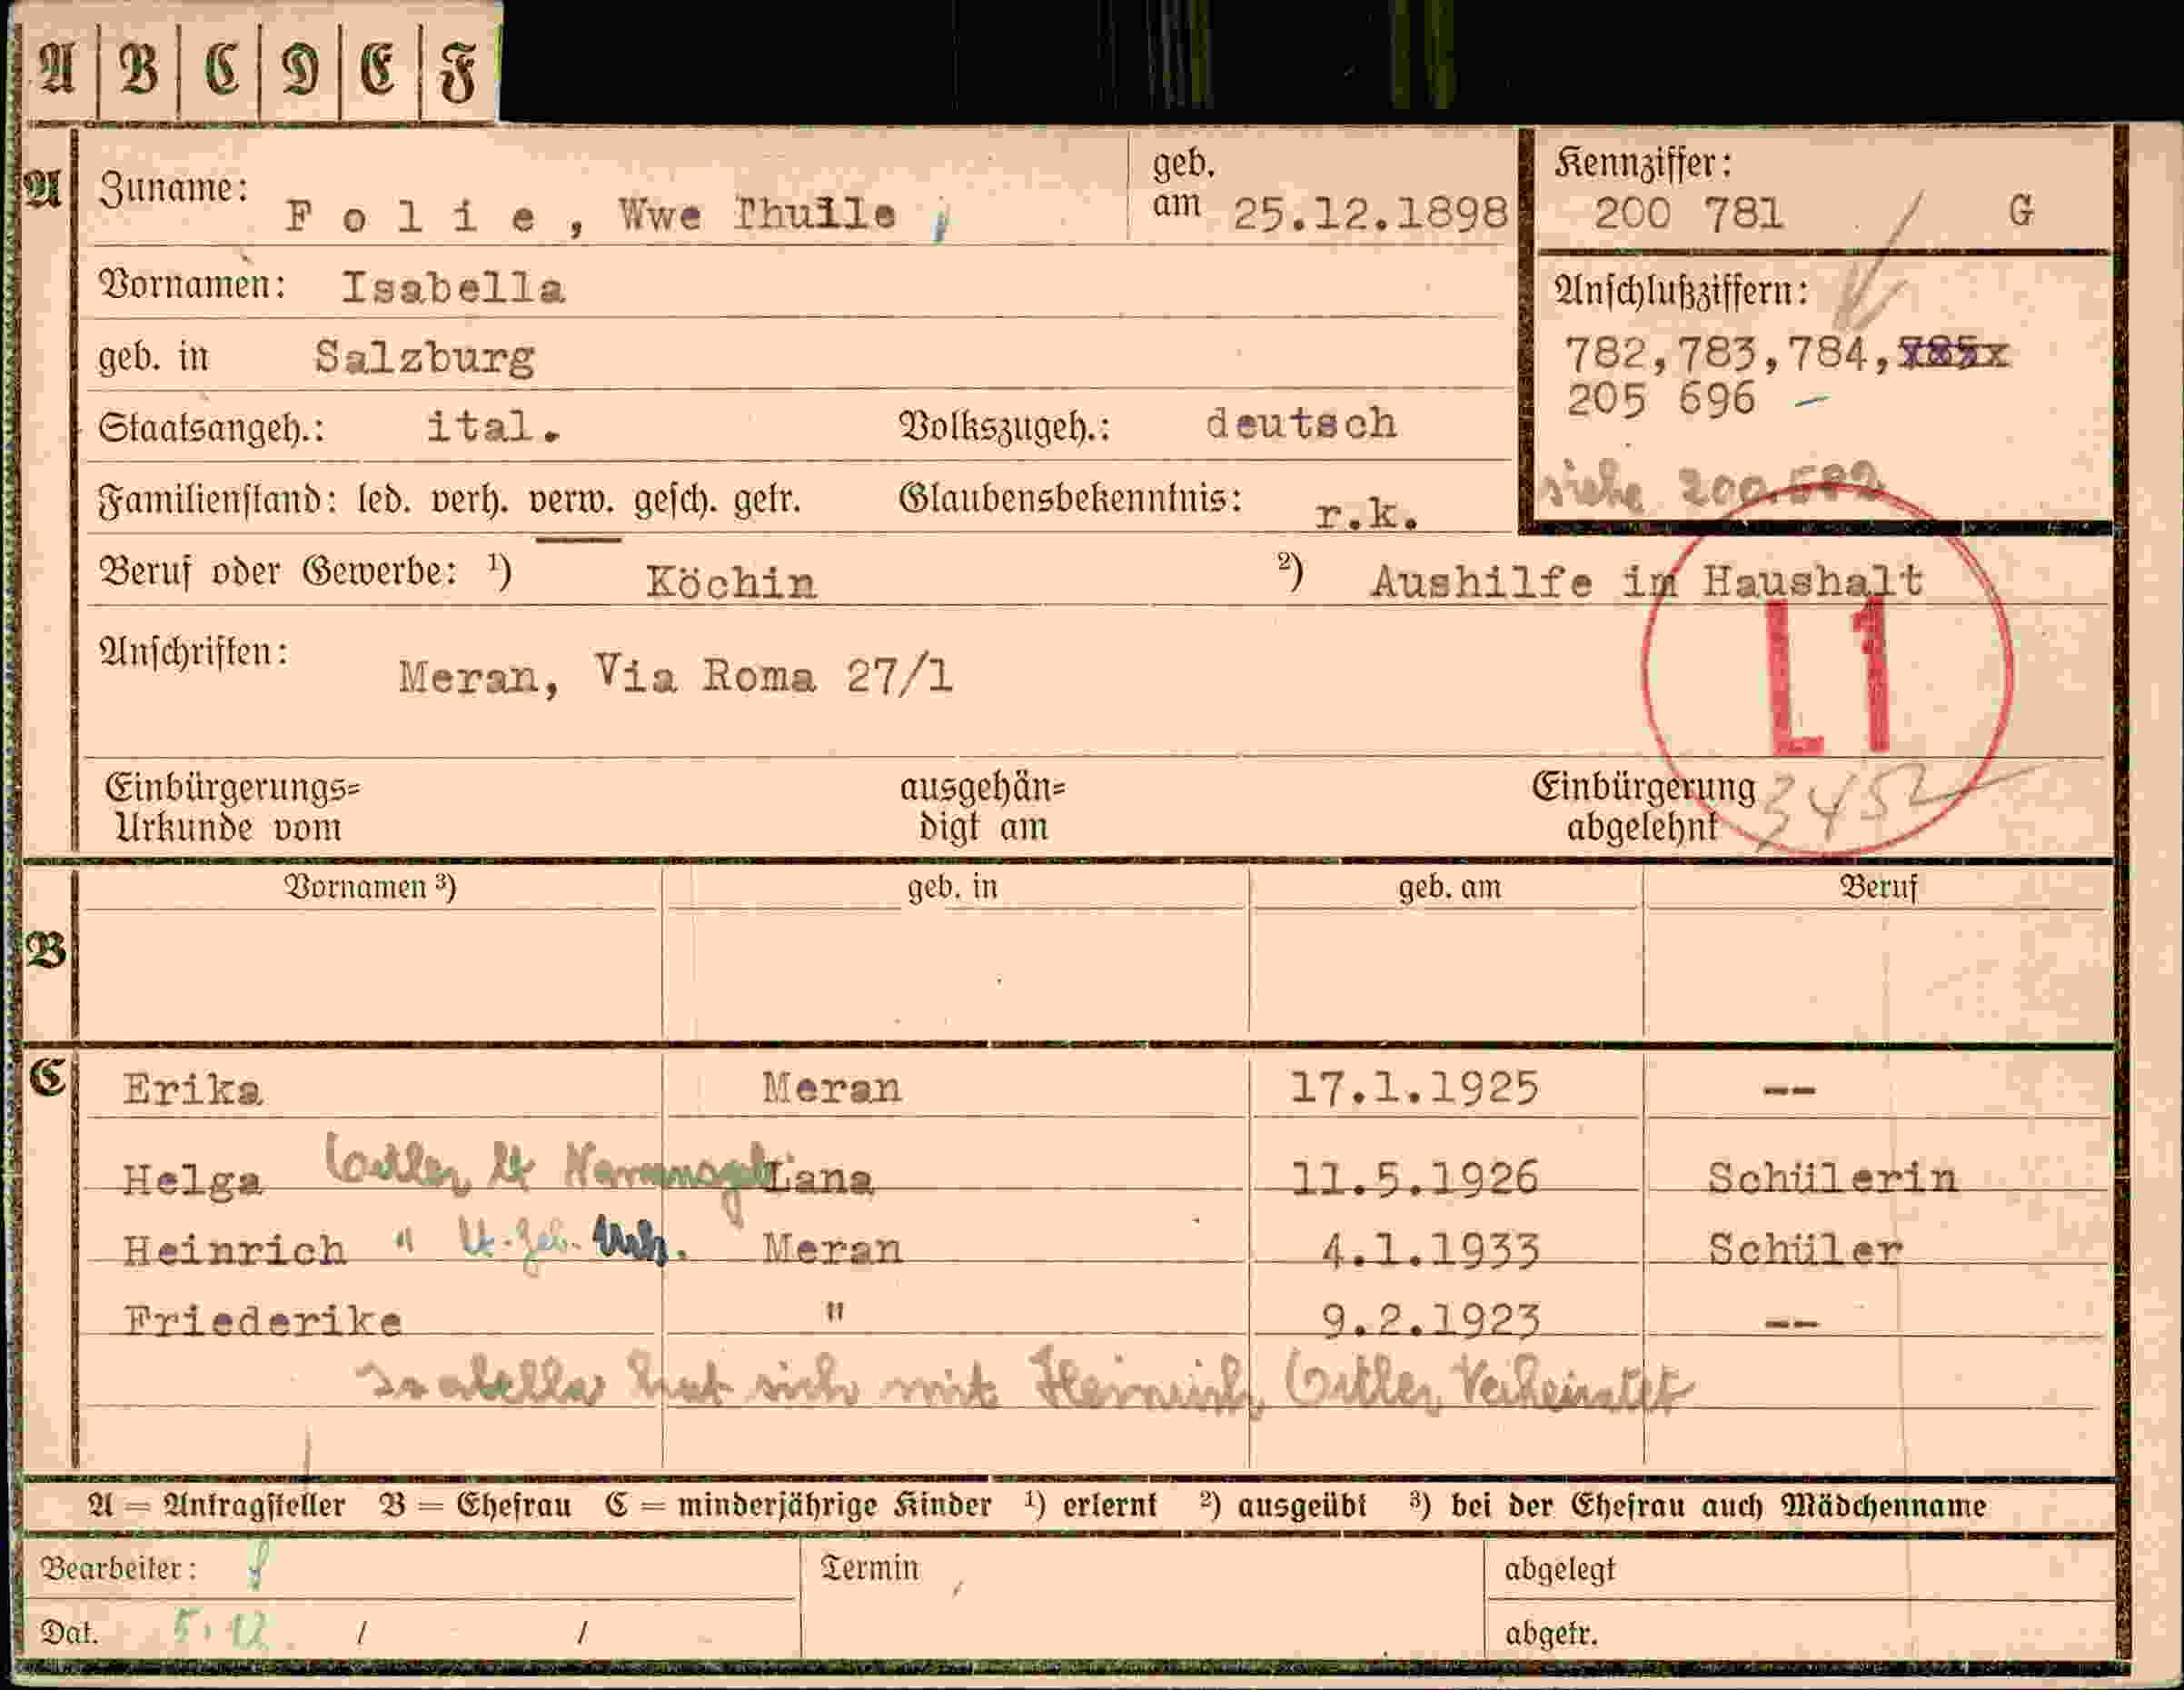 A B C D E F
A
Zuname: Folie, Wwe Thuile
geb. am 25.12.1898
Kennziffer:
200 781 G
Vornamen: Isabella
Anschlußziffern:
782,783,784,785x
205 696 –
siehe 200.582
geb. in Salzburg
Staatsangeh.: ital. Volkszugeh.: deutsch
Familienstand: led. verh. verw. gesch. getr. Glaubensbekenntnis: r.k.
Beruf oder Gewerbe: ¹) Köchin ²) Aushilfe im Haushalt
Anschriften: Meran, Via Roma 27/1
L1
3452
Einbürgerungs=
Urkunde vom
ausgehän=
digt am
Einbürgerung
abgelehnt
Vornamen ³) geb. in geb. am Beruf
B
C
Erika Meran 17.1.1925 --
Helga lt Lana 11.5.1926 Schülerin
Heinrich " lt. Geb. Urk. Meran 4.1.1933 Schüler
Friederike " 9.2.1923 --
Isabella hat sich mit Heinrich verheiratet
A = Antragsteller B = Ehefrau C = minderjährige Kinder ¹) erlernt ²) ausgeübt ³) bei der Ehefrau auch Mädchenname
Bearbeiter: Termin abgelegt
Dat. 5.12. / / abgetr.